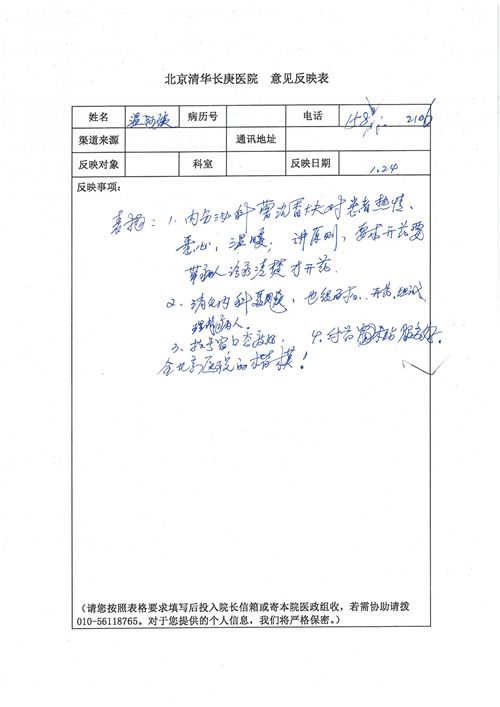 北京清华长庚医院 意见反映表
姓名 温 病历号 电话
渠道来源 通讯地址
反映对象 科室 反映日期 1.24
反映事项：
表扬：1、内分泌科 大夫对患者热情、
悉心，温暖，讲原则，要求开药要
带病人 清楚才开药.
2、消化内科 ，也很 、开药
病人.
3、挂号窗口态度好； 4、付药窗 服务好.
全北京医院的楷模！
（请您按照表格要求填写后投入院长信箱或寄本院医政组收，若需协助请拨
010-56118765。对于您提供的个人信息，我们将严格保密。）